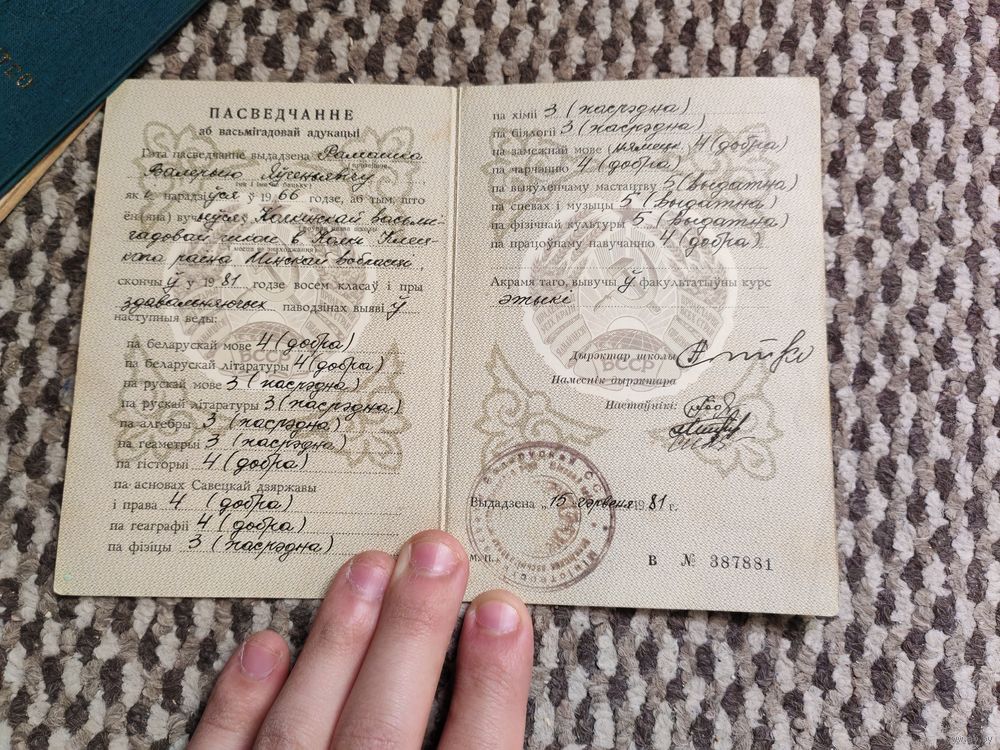 ПАСВЕДЧАННЕ
аб васьмігадовай адукацыі
Гэта пасведчанне выдадзена Рамашка
Валерыю Яўгеньевічу
як і нарадзіўся ў 1966 годзе, аб тым, што
ён(яна) вучыўся ў васьмі-
гадовай школе в. Клец-
кага раёна Мінскай вобласці,
скончыў у 1981 годзе восем класаў і пры
здавальняючых паводзінах выявіў
наступныя веды:
па беларускай мове 4 (добра)
па беларускай літаратуры 4 (добра)
па рускай мове 3 (пасрэдна)
па рускай літаратуры 3 (пасрэдна)
па алгебры 3 (пасрэдна)
па геаметрыі 3 (пасрэдна)
па гісторыі 4 (добра)
па асновах Савецкай дзяржавы
і права 4 (добра)
па геаграфіі 4 (добра)
па фізіцы 3 (пасрэдна)
па хіміі 3 (пасрэдна)
па біялогіі 3 (пасрэдна)
па замежнай мове (нямецк.) 4 (добра)
па чарчэнню 4 (добра)
па выяўленчаму мастацтву 5 (выдатна)
па спевах і музыцы 5 (выдатна)
па фізічнай культуры 5 (выдатна)
па працоўнаму навучанню 4 (добра)
Акрамя таго, вывучыў факультатыўны курс
этыкі
Дырэктар школы
Намеснік дырэктара
Настаўнікі:
Выдадзена „15 чэрвеня 1981 г.
М. П.
В № 387881
БССР
БССР